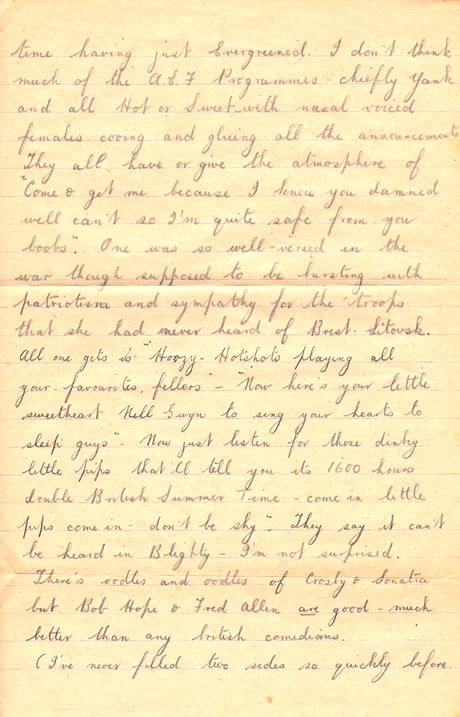 time having just Evergreened. I don't think
much of the A.E.F Programmes - chiefly Yank
and all Hot or Sweet - with nasal voiced
females cooing and glueing all the announcements
They all have or give the atmosphere of
"Come & get me because I know you damned
well can't so I'm quite safe from you
boobs". One was so well-versed in the
war though supposed to be bursting with
patriotism and sympathy for the troops
that she had never heard of Brest-Litovsk.
All one gets is "Hoozy-Hotshots playing all
your favourites, fellers" - "Now here's your little
sweetheart Nell Gwyn to sing your hearts to
sleep guys" - Now just listen for those dinky
little pips that'll tell you its 1600 hours
double British Summer Time - come in little
pips come in - don't be shy". They say it can't
be heard in Blighty - I'm not surprised.
There's oodles and oodles of Crosby & Sonatra
but Bob Hope & Fred Allen are good - much
better than any british comedians.
(I've never filled two sides so quickly before.